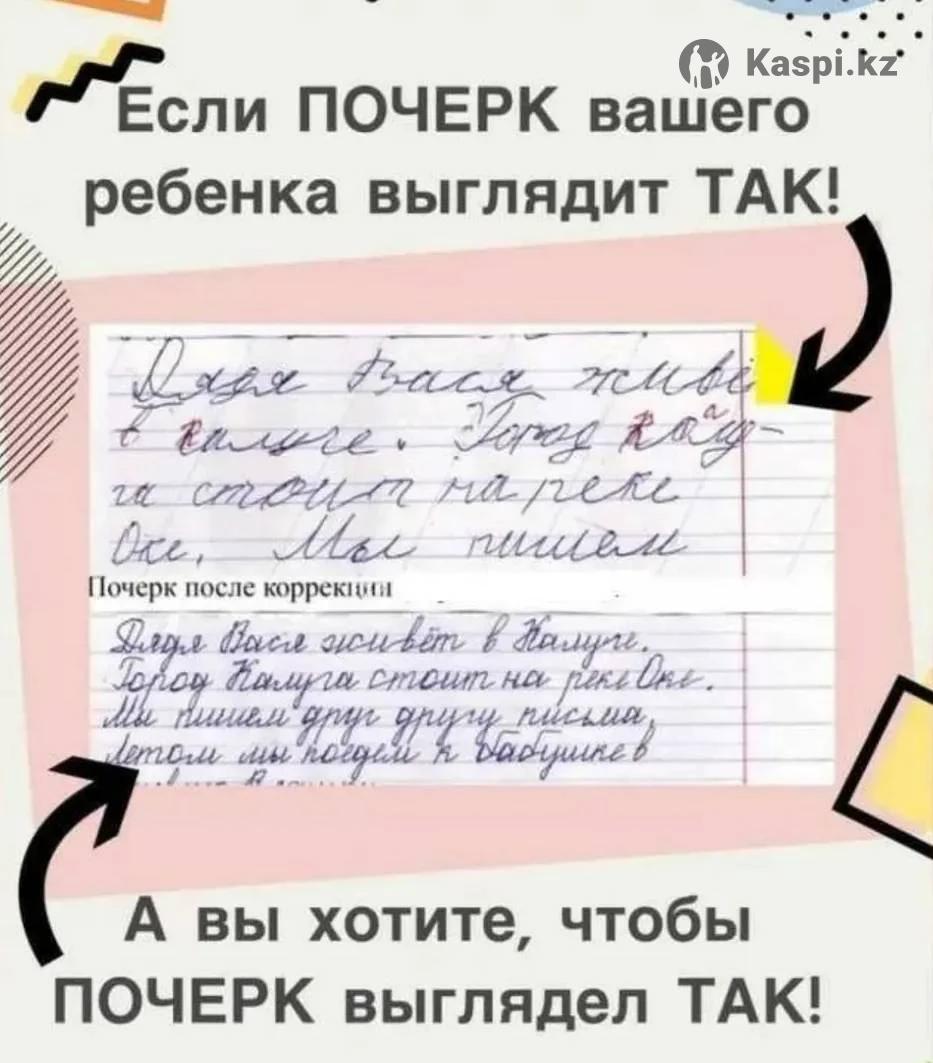 Kaspi.kz
Если ПОЧЕРК вашего
ребенка выглядит ТАК!
Дядя Вася живё
в калуге. Город Калу-
га стоит на реке
Оке. Мы пишем
Почерк после коррекции
Дядя Вася живёт в Калуге.
Город Калуга стоит на реке Оке.
Мы пишем друг другу письма,
Летом мы поедем к бабушке в
А вы хотите, чтобы
ПОЧЕРК выглядел ТАК!